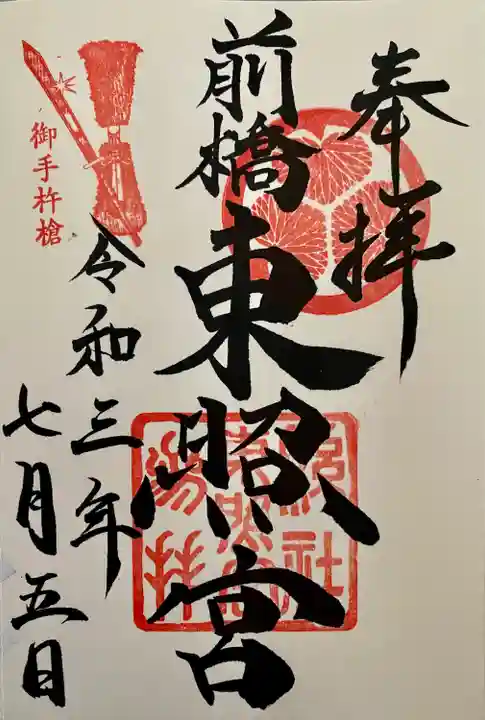 奉拝
前橋東照宮
令和三年
七月五日
御手杵槍